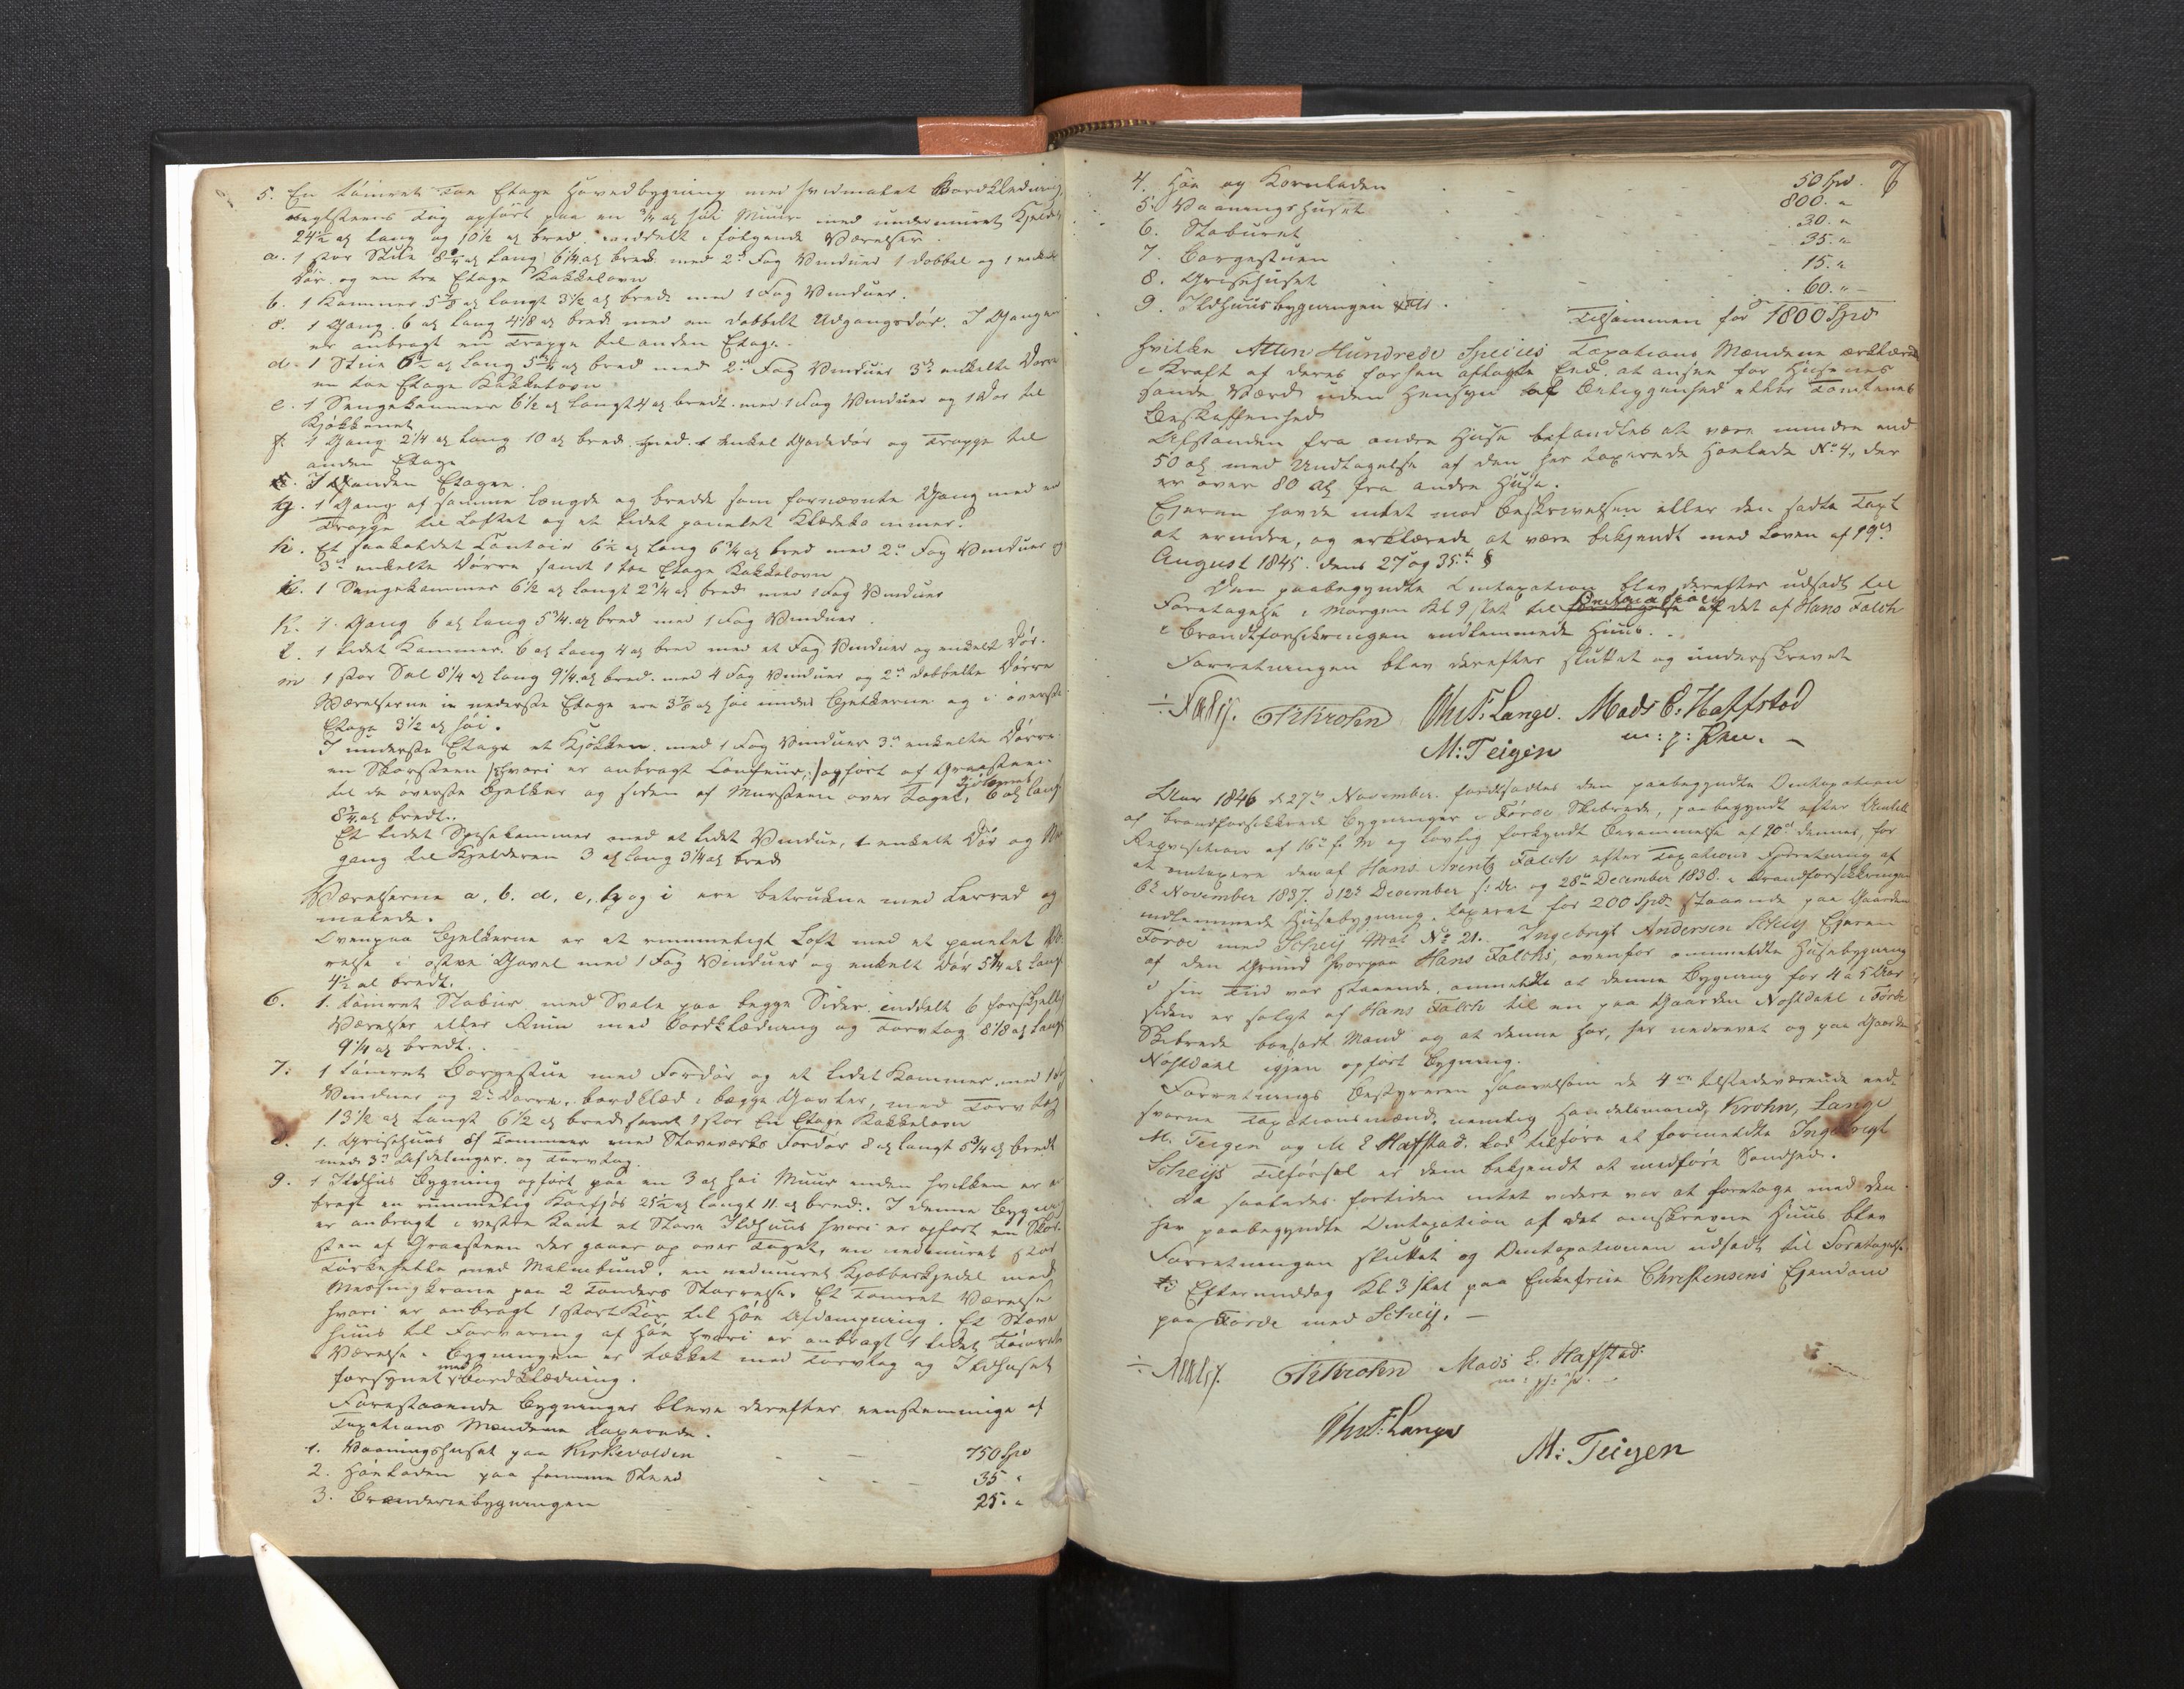 5. En tømret toe Etage Hovedbygning med hvidmalet Bordklædning,
Teglsteens Tag opført paa en 3/4 al høi Muur med undermuret Kjelder
24 1/2 al lang og 10 1/2 al bred inddelt i følgende Værelser
a. 1 stor Stue 8 1/4 al lang 6 1/4 al bred med 2de Fag Vinduer 1 dobbel og 1 enkelt
Dør og en tre Etage Kakkelovn
b. 1 Kammer 5 7/8 al langt 3 1/2 al bredt med 1 Fag Vinduer.
c. 1 Gang 6 al lang 4 1/8 al bred med en dobbelt Udgangsdør. I Gangen
er anbragt en Trappe til anden Etage.
d. 1 Stue 6 1/2 al lang 5 3/4 al bred med 2de Fag Vinduer 3de enkelte Dørre
en toe Etage Kakkelovn
e. 1 Sengekammer 6 1/2 al langt 4 al bredt med 1 Fag Vinduer og 1 Dør til
Kjøkkenet
f. 1 Gang 2 1/4 al lang 10 al bred med 1 enkel Gadedør og Trappe til
anden Etage
I anden Etagen.
g. 1 Gang af samme længde og bredde som fornævnte Gang med en
Trappe til Loftet og et lidet panelet Klædekammer.
h. Et saakaldet Contoir 6 1/2 al lang 6 3/4 al bred med 2de Fag Vinduer og
3de enkelte Dørre samt 1 toe Etage Kakkelovn
i. 1 Sengekammer 6 1/2 al langt 2 3/4 al bred med 1 Fag Vinduer
k. 1 Gang 6 al lang 5 3/4 al bred med 1 Fag Vinduer.
l. 1 lidet Kammer 6 al lang 4 al bred med et Fag Vinduer og enkelt Dør.
m 1 stor Sal 8 1/4 al lang 9 1/4 al bred med 4 Fag Vinduer og 2de dobbelte Dørre
Værelserne in nederste Etage ere 3 7/8 al høi under Bjelkerne og i øverste
Etage 3 1/2 al høi.
I underste Etage et Kjøkken med 1 Fag Vinduer 3de enkelte Dørre
en Skorsteen /:hvori er anbragt Comfeur,:/ opført af Graasteen
til de øverste Bjelker og siden af Muursteen over Taget, Kjøkkenet 6 al langt
8 3/4 al bredt.
Et lidet Spisekammer med et lidet Vindue, 1 enkelt Dør og
gang til Kjelderen 3 al lang 3 1/4 al bred
Værelserne a, b. d, e, h og i ere betrukne med Lerred og
malede.
Ovenpaa Bjelkerne er et rummeligt Loft med et panelet
relse i østre Gavel med 1 Fag Vinduer og enkelt Dør 5 3/4 al langt
4 1/2 al bredt.
6. 1. tømret Stabur med Svale paa begge Sider inddelt 6 forskjellige
Værelser eller Rum med Bordklædning og Torvtag 8 1/8 al langt
9 1/4 al bredt.
7. 1 tømret Borgestue med Fordør og et lidet Kammer med 1 Fag
Vinduer og 2de Dørre, bordklæd i begge Gavler, med Torvtag
13 1/2 al langt 6 1/2 al bred samt 1 stor En Etage Kakkelovn
8. 1. Grisehuus af Tømmer med Staveværks Fordør 8 al langt 5 3/4 al bredt
med 3de Afdelinger og Torvtag
9. 1 Ildhus Bygning opført paa en 3 al høi Muur under hvilken er an
bragt en rummelig Koefjøs 21 1/2 al langt 11 al bred. I denne Bygning
er anbragt i vestre Kant et Stave Ildhuus hvori er opført en Skor-
sten af Graasteen der gaaer op over Taget, en nedmuret stor
Tørkehelle med Malmbund, en nedmuret Kjobberkjedel med
Messingkrane paa 2 Tønders Størrelse. Et Tømret Værelse
hvori er anbragt 1 stort Kar til Høe Afdampning. Et Stave
huus til Forvaring af Høe hvori er anbragt 1 lidet Tømret
Værelse. Bygningen er tækket med Torvtag og Ildhuset
forsynet med Bordklædning.
Forestaaende Bygninger bleve derefter eenstemmige af
Taxations Mændene taxerede.
1. Vaaningshuset paa Kirkevolden - 750 Spd
2. Høeladen paa samme Sted - 35 "
3. Brænderiebygningen - 25. "
7
4. Høe og Kornladen . 50 Spd.
5. Vaaningshuset 800. "
6. Staburet 30. "
7. Borgestuen 35. "
8. Grisehuset 15. "
9. Ildhuusbygningen 60. " -
Tilsammen for 1800 Spd
hvilke Atten Hundrede Species Taxations Mændene erklærede
i Kraft af deres forhen aflagte Eed, at ansee for Husenes
sande Værd uden Hensyn til Beliggenhed eller Tomtenes
Beskaffenhed
Afstanden fra andre Huse befandtes at være mindre end
50 al med Undtagelse af den her taxerede Hoelade No 4, der
er over 80 al fra andre Huse.
Eieren havde intet mod Beskrivelsen eller den satte Taxt
at erindre, og erklærede at være bekjendt med Loven af 19de
August 1845 dens 27 og 35te §
Den paabegyndte Omtaxation blev derefter udsadt til
Foretagelse i Morgen Kl 9 slet til Omtaxation af det af Hans Falch
i Brandforsikringen indlemmede Huus.
Forretningen blev derefter sluttet og underskrevet
Krohn Chr F: Lange. Mads E: Hafstad
M: Teigen m: p: Pen. -
Aar 1846 d 27de November fortsattes den paabegyndte Omtaxation
af brandforsikkrede Bygninger i Førde Skibrede, paabegyndt efter Amtets
Reqvisition af 16de f. M og lovlig forkyndt Berammelse af 20de dennes, for
at omtaxere den af Hans Arentz Falch efter Taxations Forretning af
6te November 1837. d 12te December s: A. og 28de December 1838. i Brandforsikkringen
indlemmede Huusebygning, taxeret for 200 Spd. staaende paa Gaarden
Førde med Schey Mat No 21. Ingebrigt Andersen Schey Eieren
af den Grund hvorpaa Hans Falchs, ovenfor ommeldte Husebygning
i sin Tiid var staaende, anmeldte at denne Bygning for 4 a 5 Aar
siden er solgt af Hans Falch til en paa Gaarden Nøstdahl i Førde
Skibrede boesadt Mand og at denne har, her nedrevet og paa Gaarden
Nøstdahl igjen opført Bygning.
Forretnings Bestyreren saavelsom de 4re tilstedeværende eed-
svorne Taxationsmænd, nemlig Handelsmænd, Krohn, Lange
M. Teigen og M E Hafstad, lod tilføre at formeldte Ingebrigt
Scheys Tilførsel er dem bekjendt at medføre Sandhed.
Da saaledes fortiden intet videre var at foretage med den
her paabegyndte Omtaxation af det omskrevne Huus blev
Forretningen sluttet og Omtaxationen udsadt til Foretagelse
Eftermiddag Kl. 3 slet paa Enkefrue Christensens Eiendom
paa Førde med Schey. -
Krohn Mads E. Hafstad
Chr F: Lange
M: Teigen